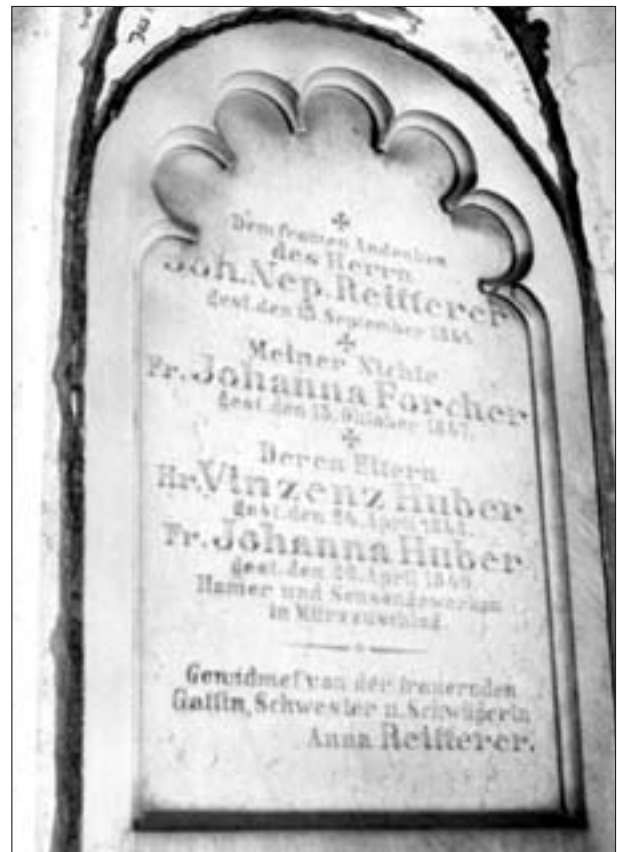 Dem frommen Andenken
des Herrn
Joh. Nep. Reitterer
gest. den 15. September
Meiner Nichte
Fr. Johanna Forcher
gest. den 15. Oktober 1867.
Deren Eltern
Hr. Vinzenz Huber
gest. den April
Fr. Johanna Huber
gest. den April
Hamer und Sensengewerken
in Mürzzuschlag.
Gewidmet von der trauernden
Gattin, Schwester u. Schwägerin
Anna Reitterer.